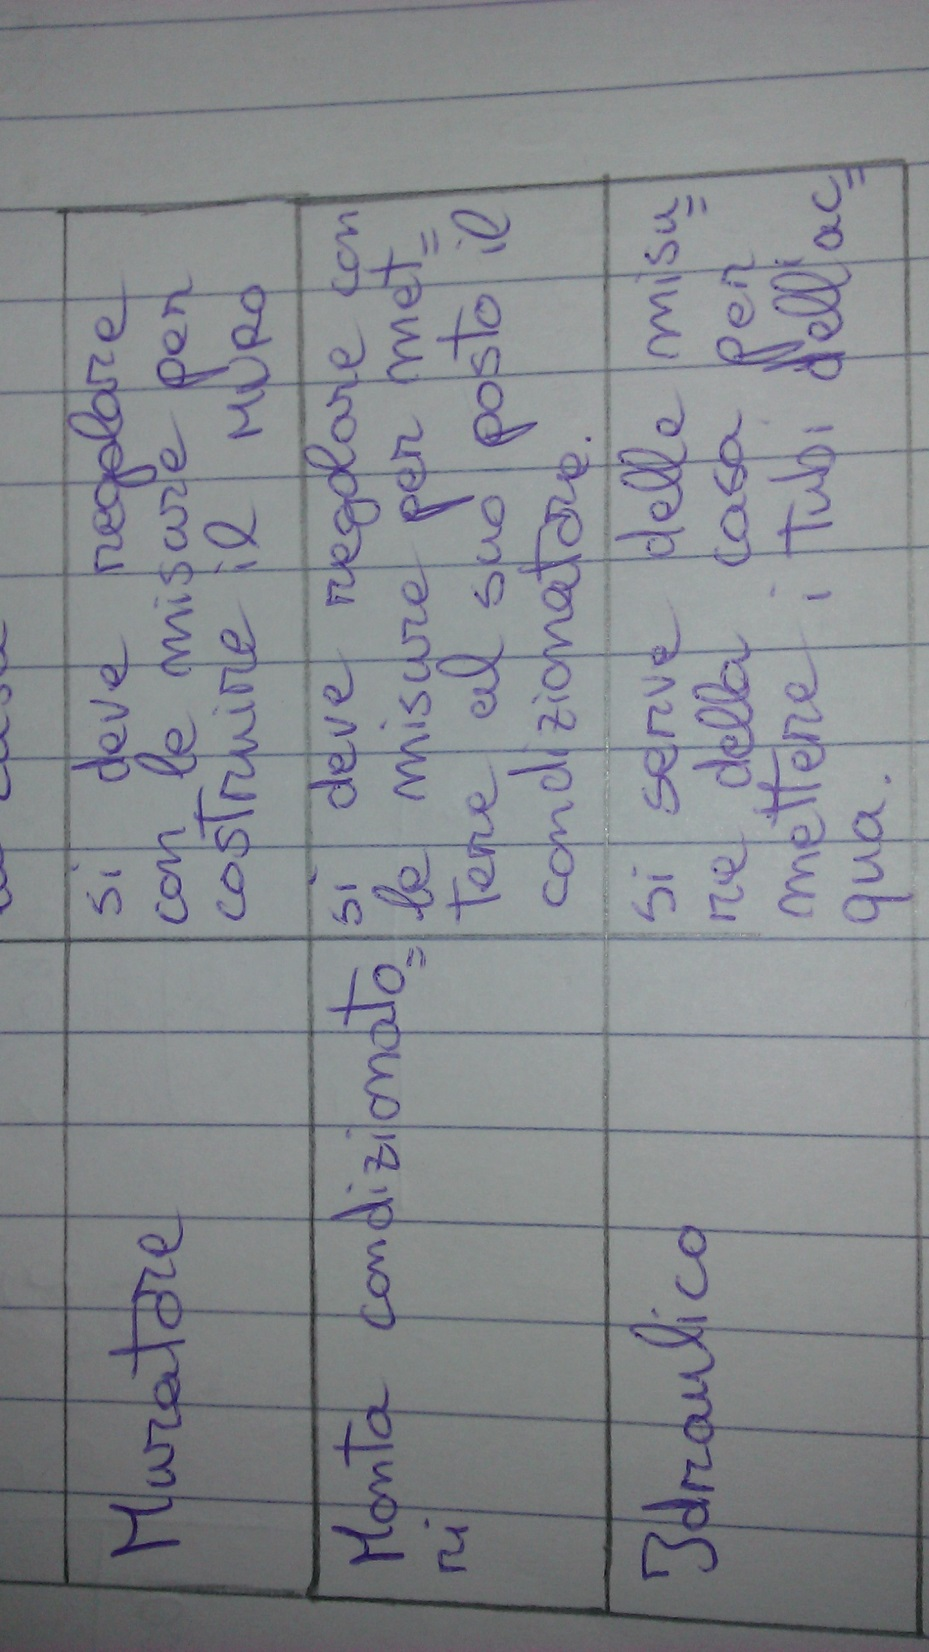 Muratore
si deve regolare
con le misure per
costruire il MURO
Monta condizionato=
ri
si deve regolare con
le misure per met=
tere al suo posto il
condizionatore.
Idraulico
si serve delle misu=
re della casa per
mettere i tubi dell'ac=
qua.